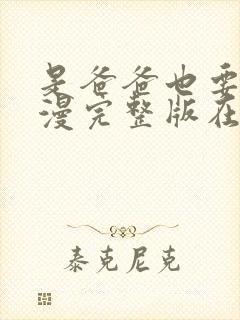 是爸爸也要
漫完整版在
泰克尼克